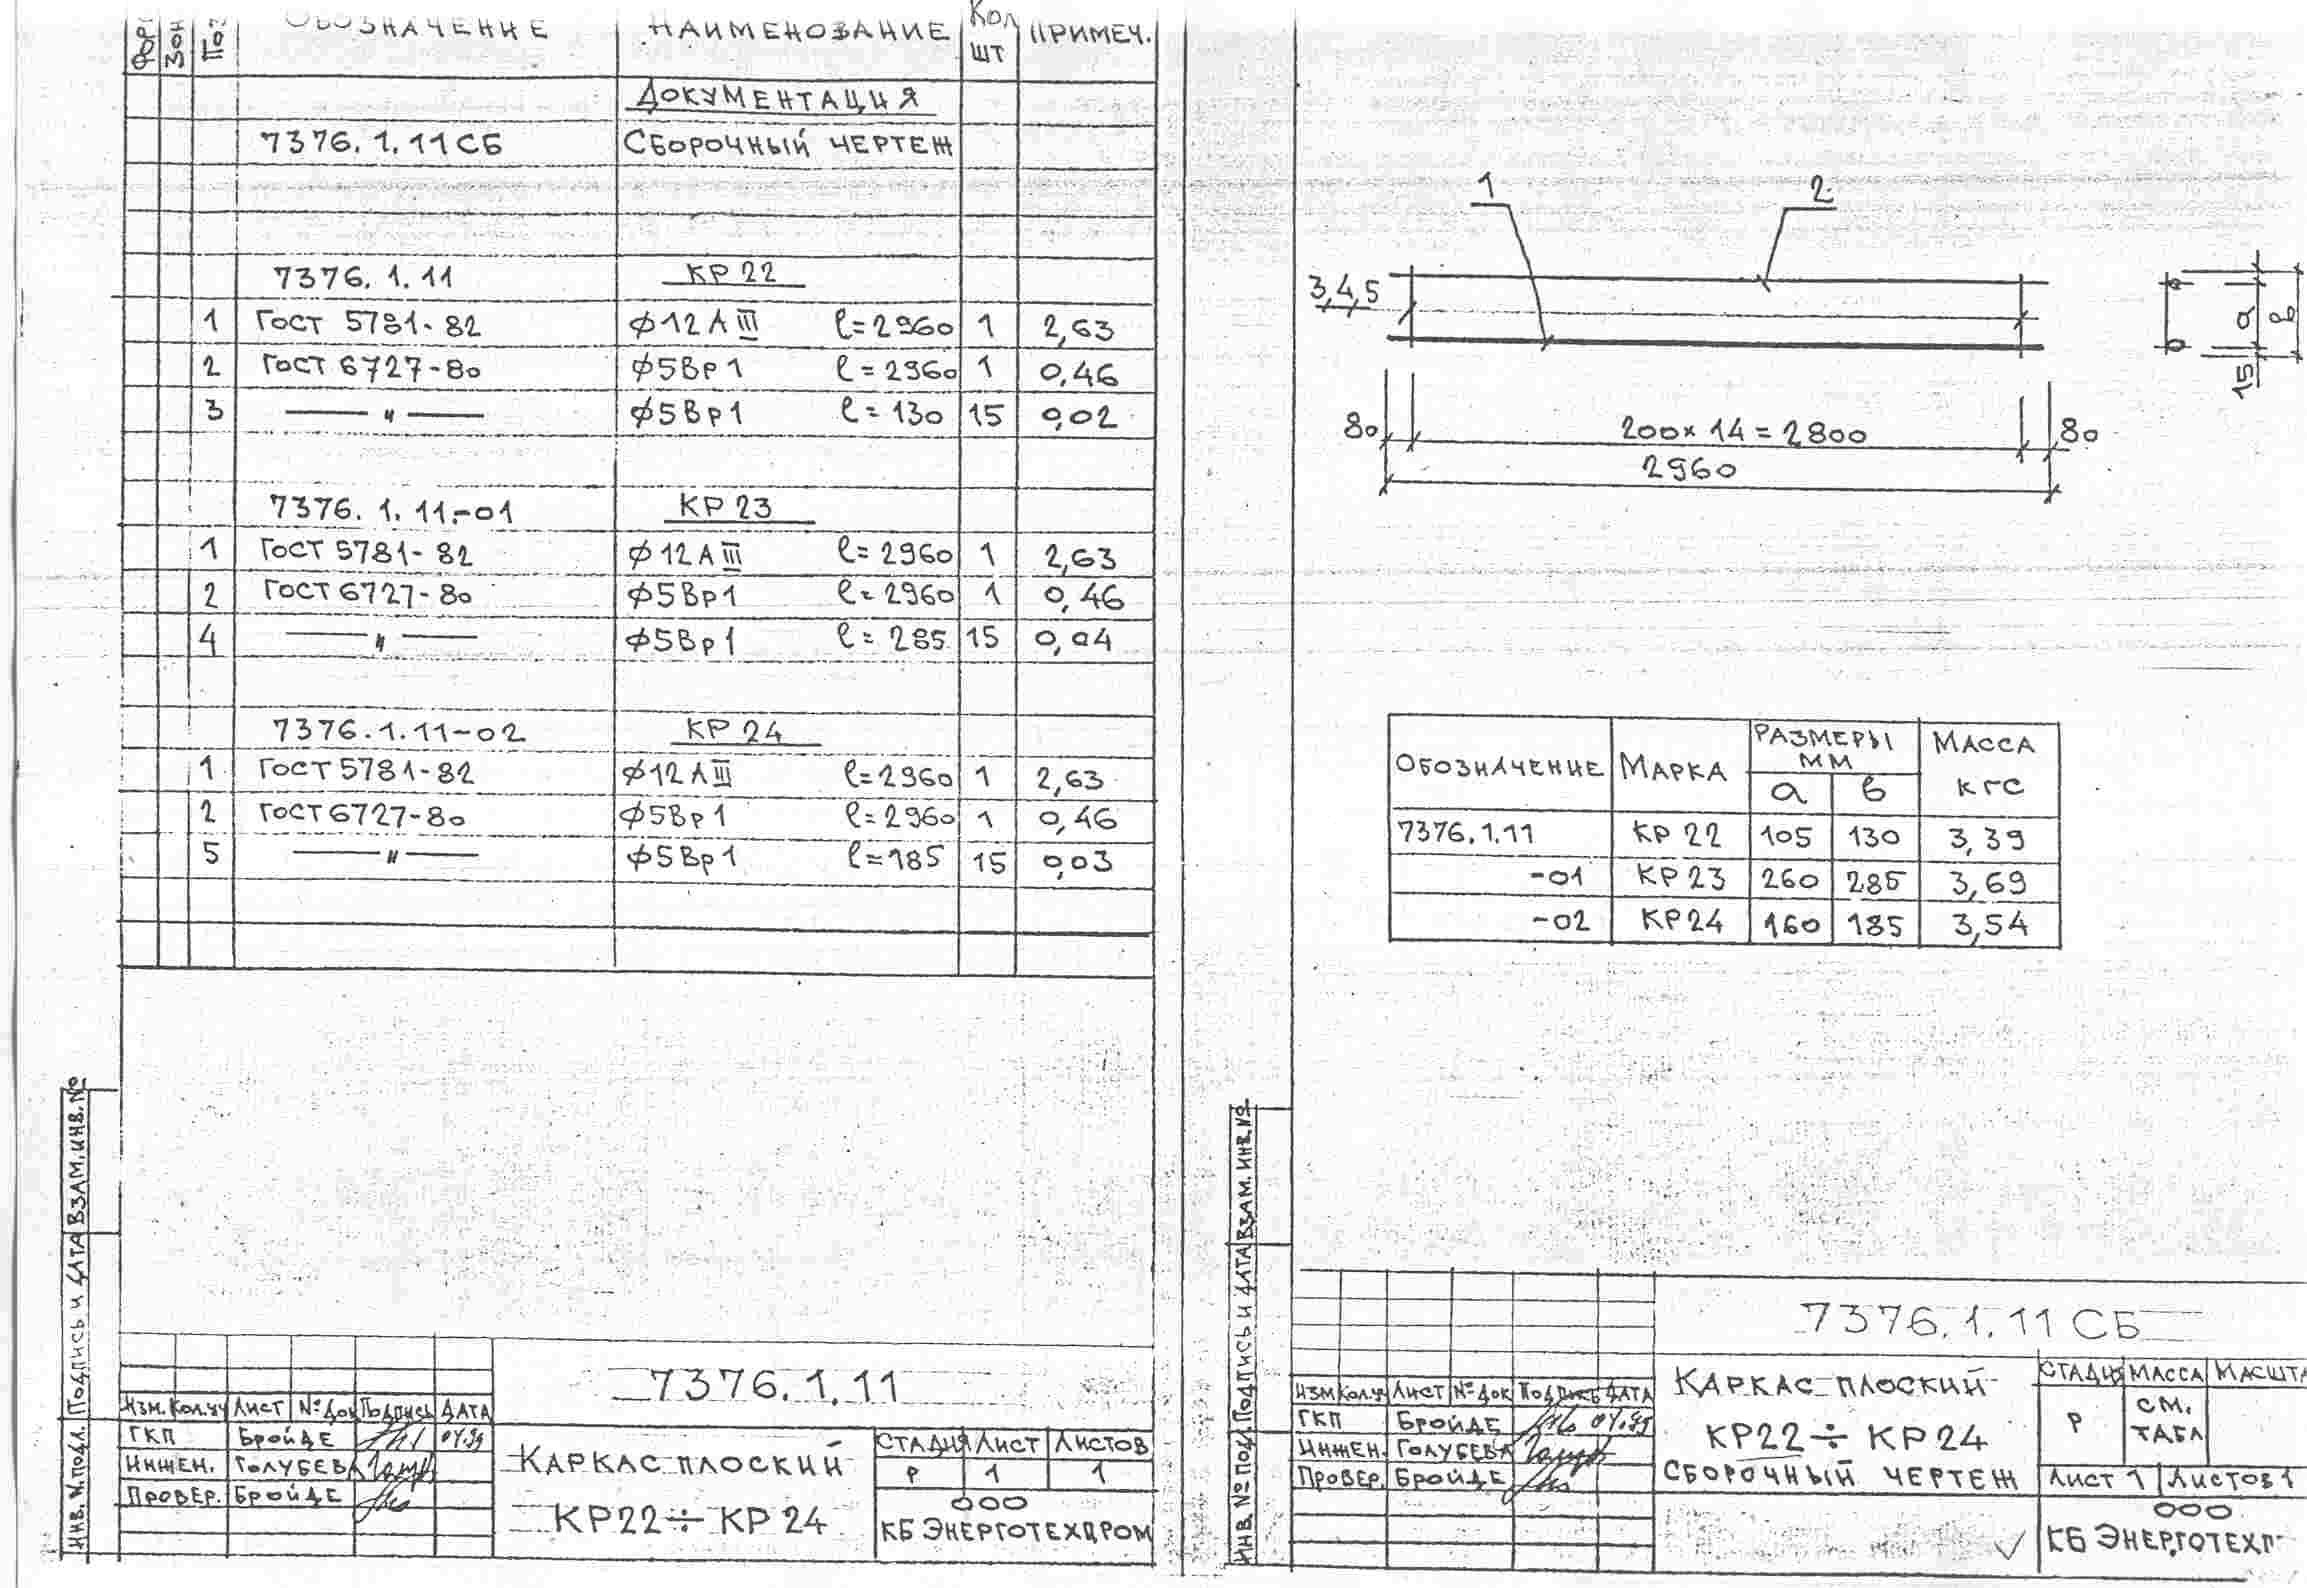 Фор Зон Поз ОБОЗНАЧЕНИЕ НАИМЕНОВАНИЕ Кол шт ПРИМЕЧ.
ДОКУМЕНТАЦИЯ
7376.1.11СБ СБОРОЧНЫЙ ЧЕРТЕЖ
7376.1.11 КР 22
1 ГОСТ 5781-82 ϕ12АIII ℓ=2960 1 2,63
2 ГОСТ 6727-80 ϕ5Вр1 ℓ=2960 1 0,46
3 —— " —— ϕ5Вр1 ℓ=130 15 0,02
7376.1.11.-01 КР 23
1 ГОСТ 5781-82 ϕ12АIII ℓ=2960 1 2,63
2 ГОСТ 6727-80 ϕ5Вр1 ℓ=2960 1 0,46
4 —— " —— ϕ5Вр1 ℓ=285 15 0,04
7376.1.11-02 КР 24
1 ГОСТ 5781-82 ϕ12АIII ℓ=2960 1 2,63
2 ГОСТ 6727-80 ϕ5Вр1 ℓ=2960 1 0,46
5 —— " —— ϕ5Вр1 ℓ=185 15 0,03
ИНВ. N.ПОДЛ. ПОДПИСЬ И ДАТА ВЗАМ.ИНВ.№
7376.1.11
ИЗМ. КОЛ.УЧ ЛИСТ №ДОК ПОДПИСЬ ДАТА
ГКП БРОЙДЕ 04.99
ИНЖЕН. ГОЛУБЕВА
ПРОВЕР. БРОЙДЕ
КАРКАС ПЛОСКИЙ
КР22÷КР24
СТАДИЯ ЛИСТ ЛИСТОВ
Р 1 1
ООО
КБ ЭНЕРГОТЕХПРОМ
1 2
3,4,5
а в
15
80 200×14=2800 80
2960
ОБОЗНАЧЕНИЕ МАРКА РАЗМЕРЫ ММ МАССА КГС
а в
7376.1.11 КР 22 105 130 3,39
-01 КР 23 260 285 3,69
-02 КР 24 160 185 3,54
ИНВ. № ПОДЛ. ПОДПИСЬ И ДАТА ВЗАМ. ИНВ.№
7376.1.11 СБ
ИЗМ КОЛ.УЧ ЛИСТ №ДОК ПОДПИСЬ ДАТА
ГКП БРОЙДЕ 04.99
ИНЖЕН. ГОЛУБЕВА
ПРОВЕР. БРОЙДЕ
КАРКАС ПЛОСКИЙ
КР22÷КР24
СБОРОЧНЫЙ ЧЕРТЕЖ
СТАДИЯ МАССА МАСШТА
Р СМ. ТАБЛ
ЛИСТ 1 ЛИСТОВ 1
ООО
КБ ЭНЕРГОТЕХП